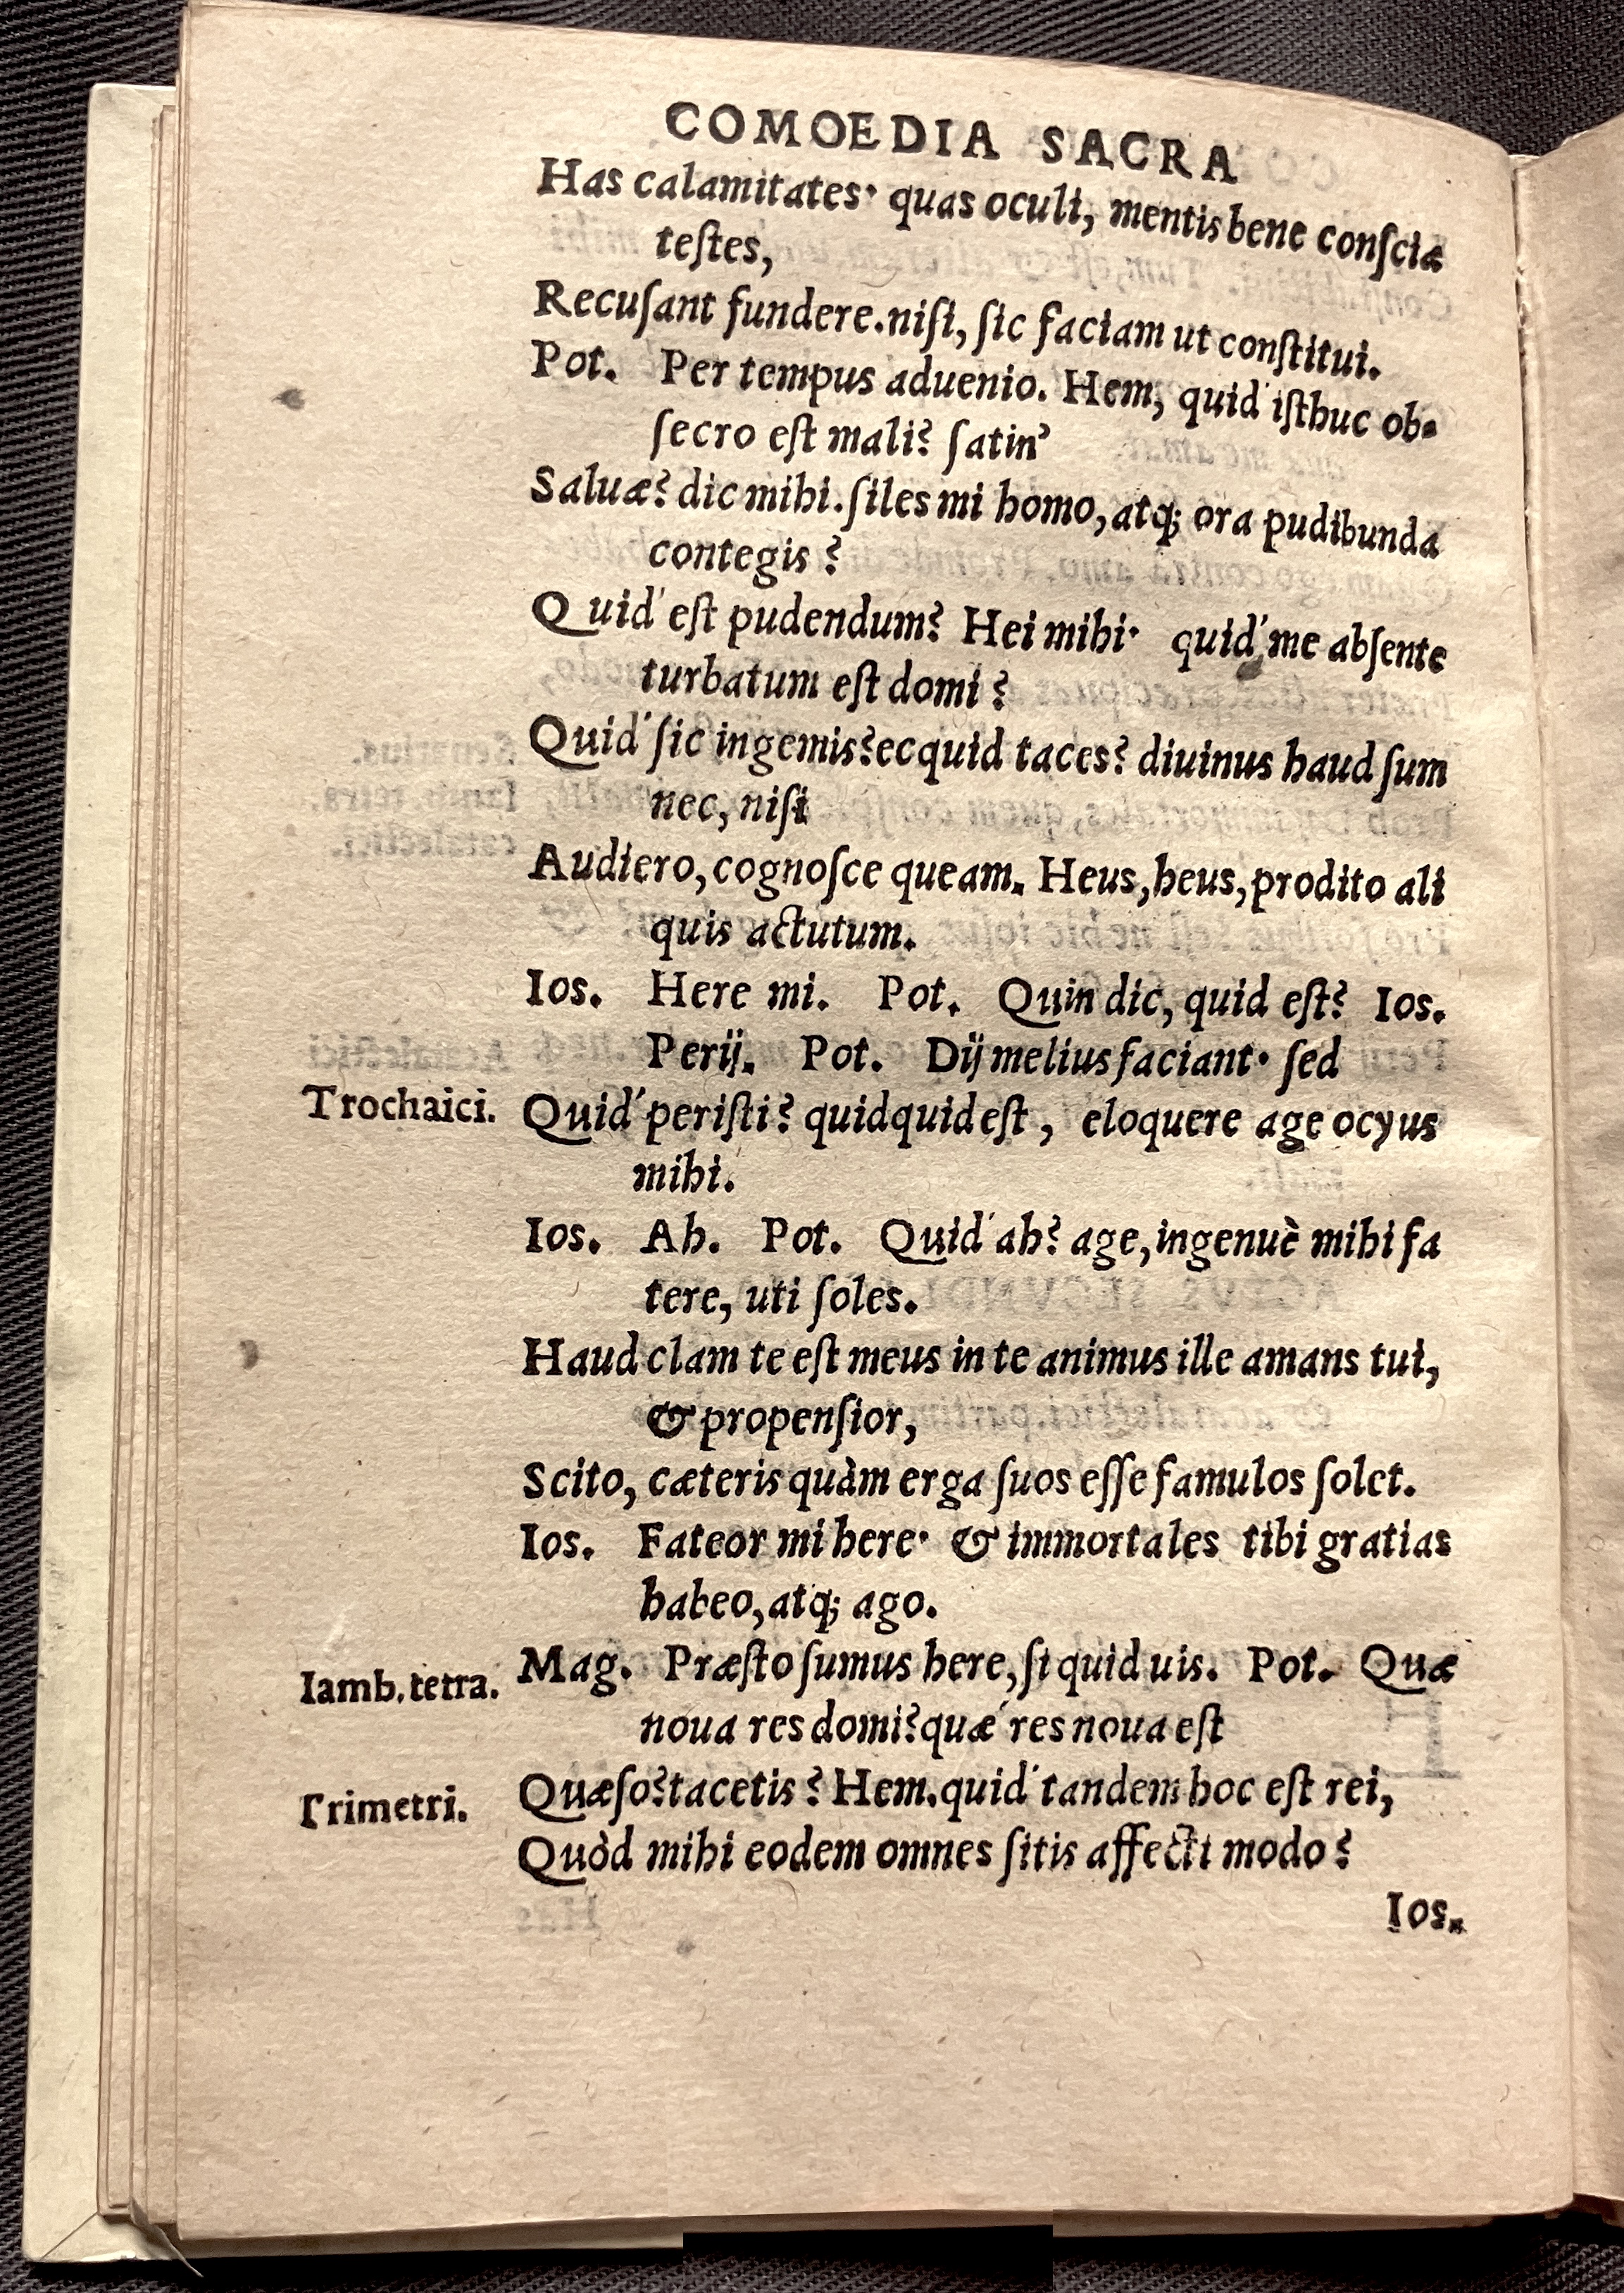 COMOEDIA SACRA
Has calamitates· quas oculi, mentis bene conſciæ
teſtes,
Recuſant fundere.niſi, ſic faciam ut conſtitui.
Pot. Per tempus aduenio. Hem, quid' iſthuc ob-
ſecro eſt mali? ſatin'
Saluæ? dic mihi. ſiles mi homo, atq; ora pudibunda
contegis?
Quid' eſt pudendum? Hei mihi· quid' me abſente
turbatum eſt domi?
Quid' ſic ingemis? ecquid taces? diuinus haud ſum
nec, niſi
Audiero, cognoſce queam. Heus, heus, prodito ali
quis actutum.
Ios. Here mi. Pot. Quin dic, quid eſt? Ios.
Perij. Pot. Dij melius faciant· ſed
Trochaici. Quid' periſti? quidquid eſt, eloquere age ocyus
mihi.
Ios. Ah. Pot. Quid' ah? age, ingenuè mihi fa
tere, uti ſoles.
Haud clam te eſt meus in te animus ille amans tui,
& propenſior,
Scito, cæteris quàm erga ſuos eſſe famulos ſolet.
Ios. Fateor mi here· & immortales tibi gratias
habeo, atq; ago.
Iamb. tetra. Mag. Præſto ſumus here, ſi quid uis. Pot. Quæ
noua res domi? quæ' res noua eſt
Trimetri. Quæſo? tacetis? Hem. quid' tandem hoc eſt rei,
Quòd mihi eodem omnes ſitis affecti modo?
Ios.